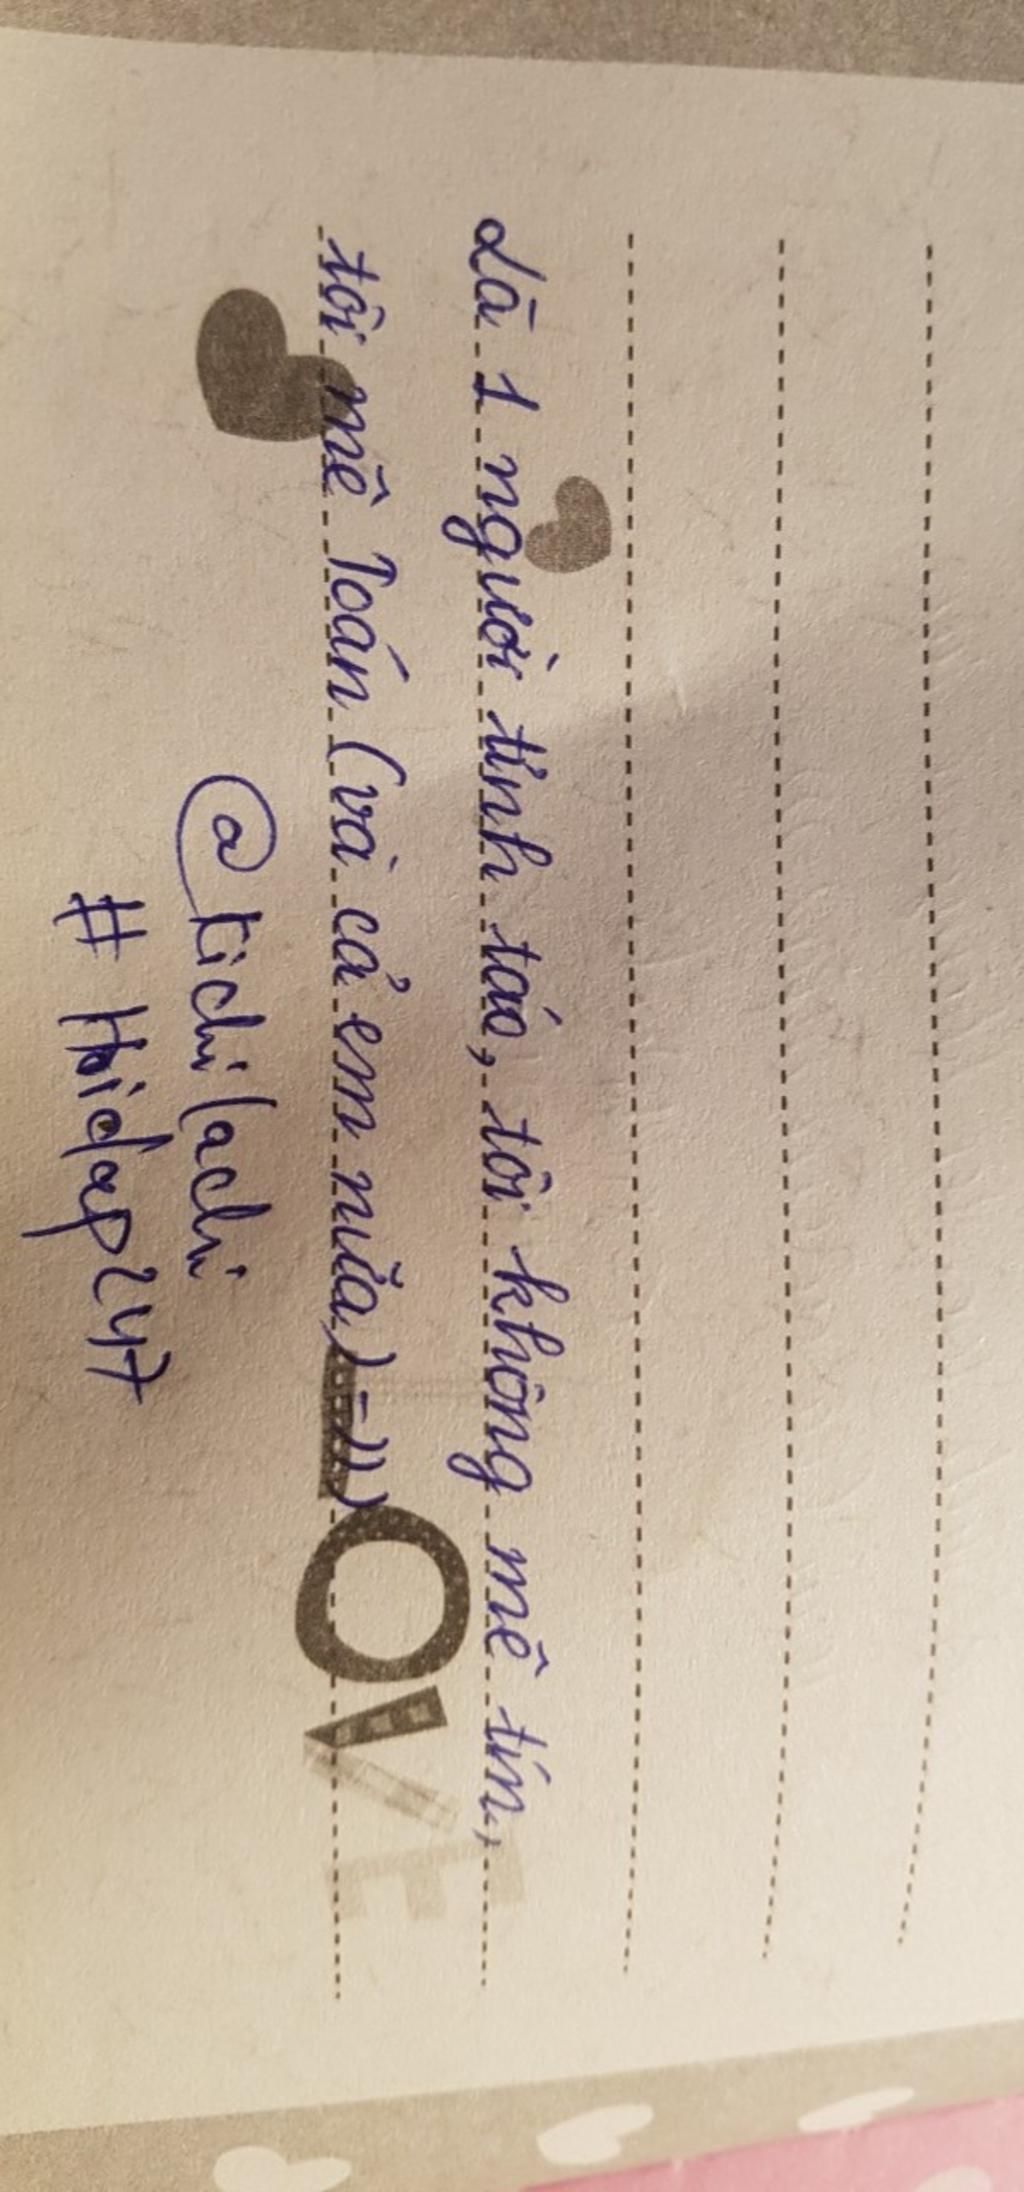 Là 1 người tỉnh táo, tôi không mê tín,
tôi mê Toán (và cả em nữa) =))
LOVE
@kichilachi
# Hoidap247